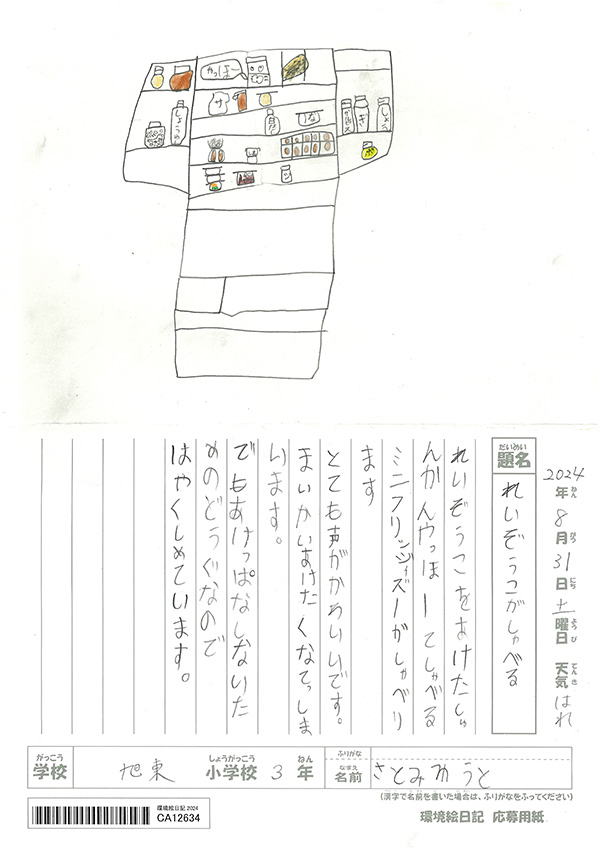 やっほー
サ
しょうゆ
2024年8月31日土曜日 天気 はれ
ねん
がつ
にち
ようび
てんき
だいめい
題名
れいぞうこがしゃべる
れいぞうこをあけたしゅ
んかんやっほーてしゃべる
ミニフリッジィズーがしゃべり
ます
とても声がかわいいです。
まいかいあけたくなてっしま
います。
でもあけっぱなしないた
めのどうぐなので
はやくしめています。
がっこう
学校
旭東
しょうがっこう
小学校
3
ねん
年
ふりがな
なまえ
名前
さとみゆうと
(漢字で名前を書いた場合は、ふりがなをふってください)
環境絵日記 2024
CA12634
環境絵日記 応募用紙